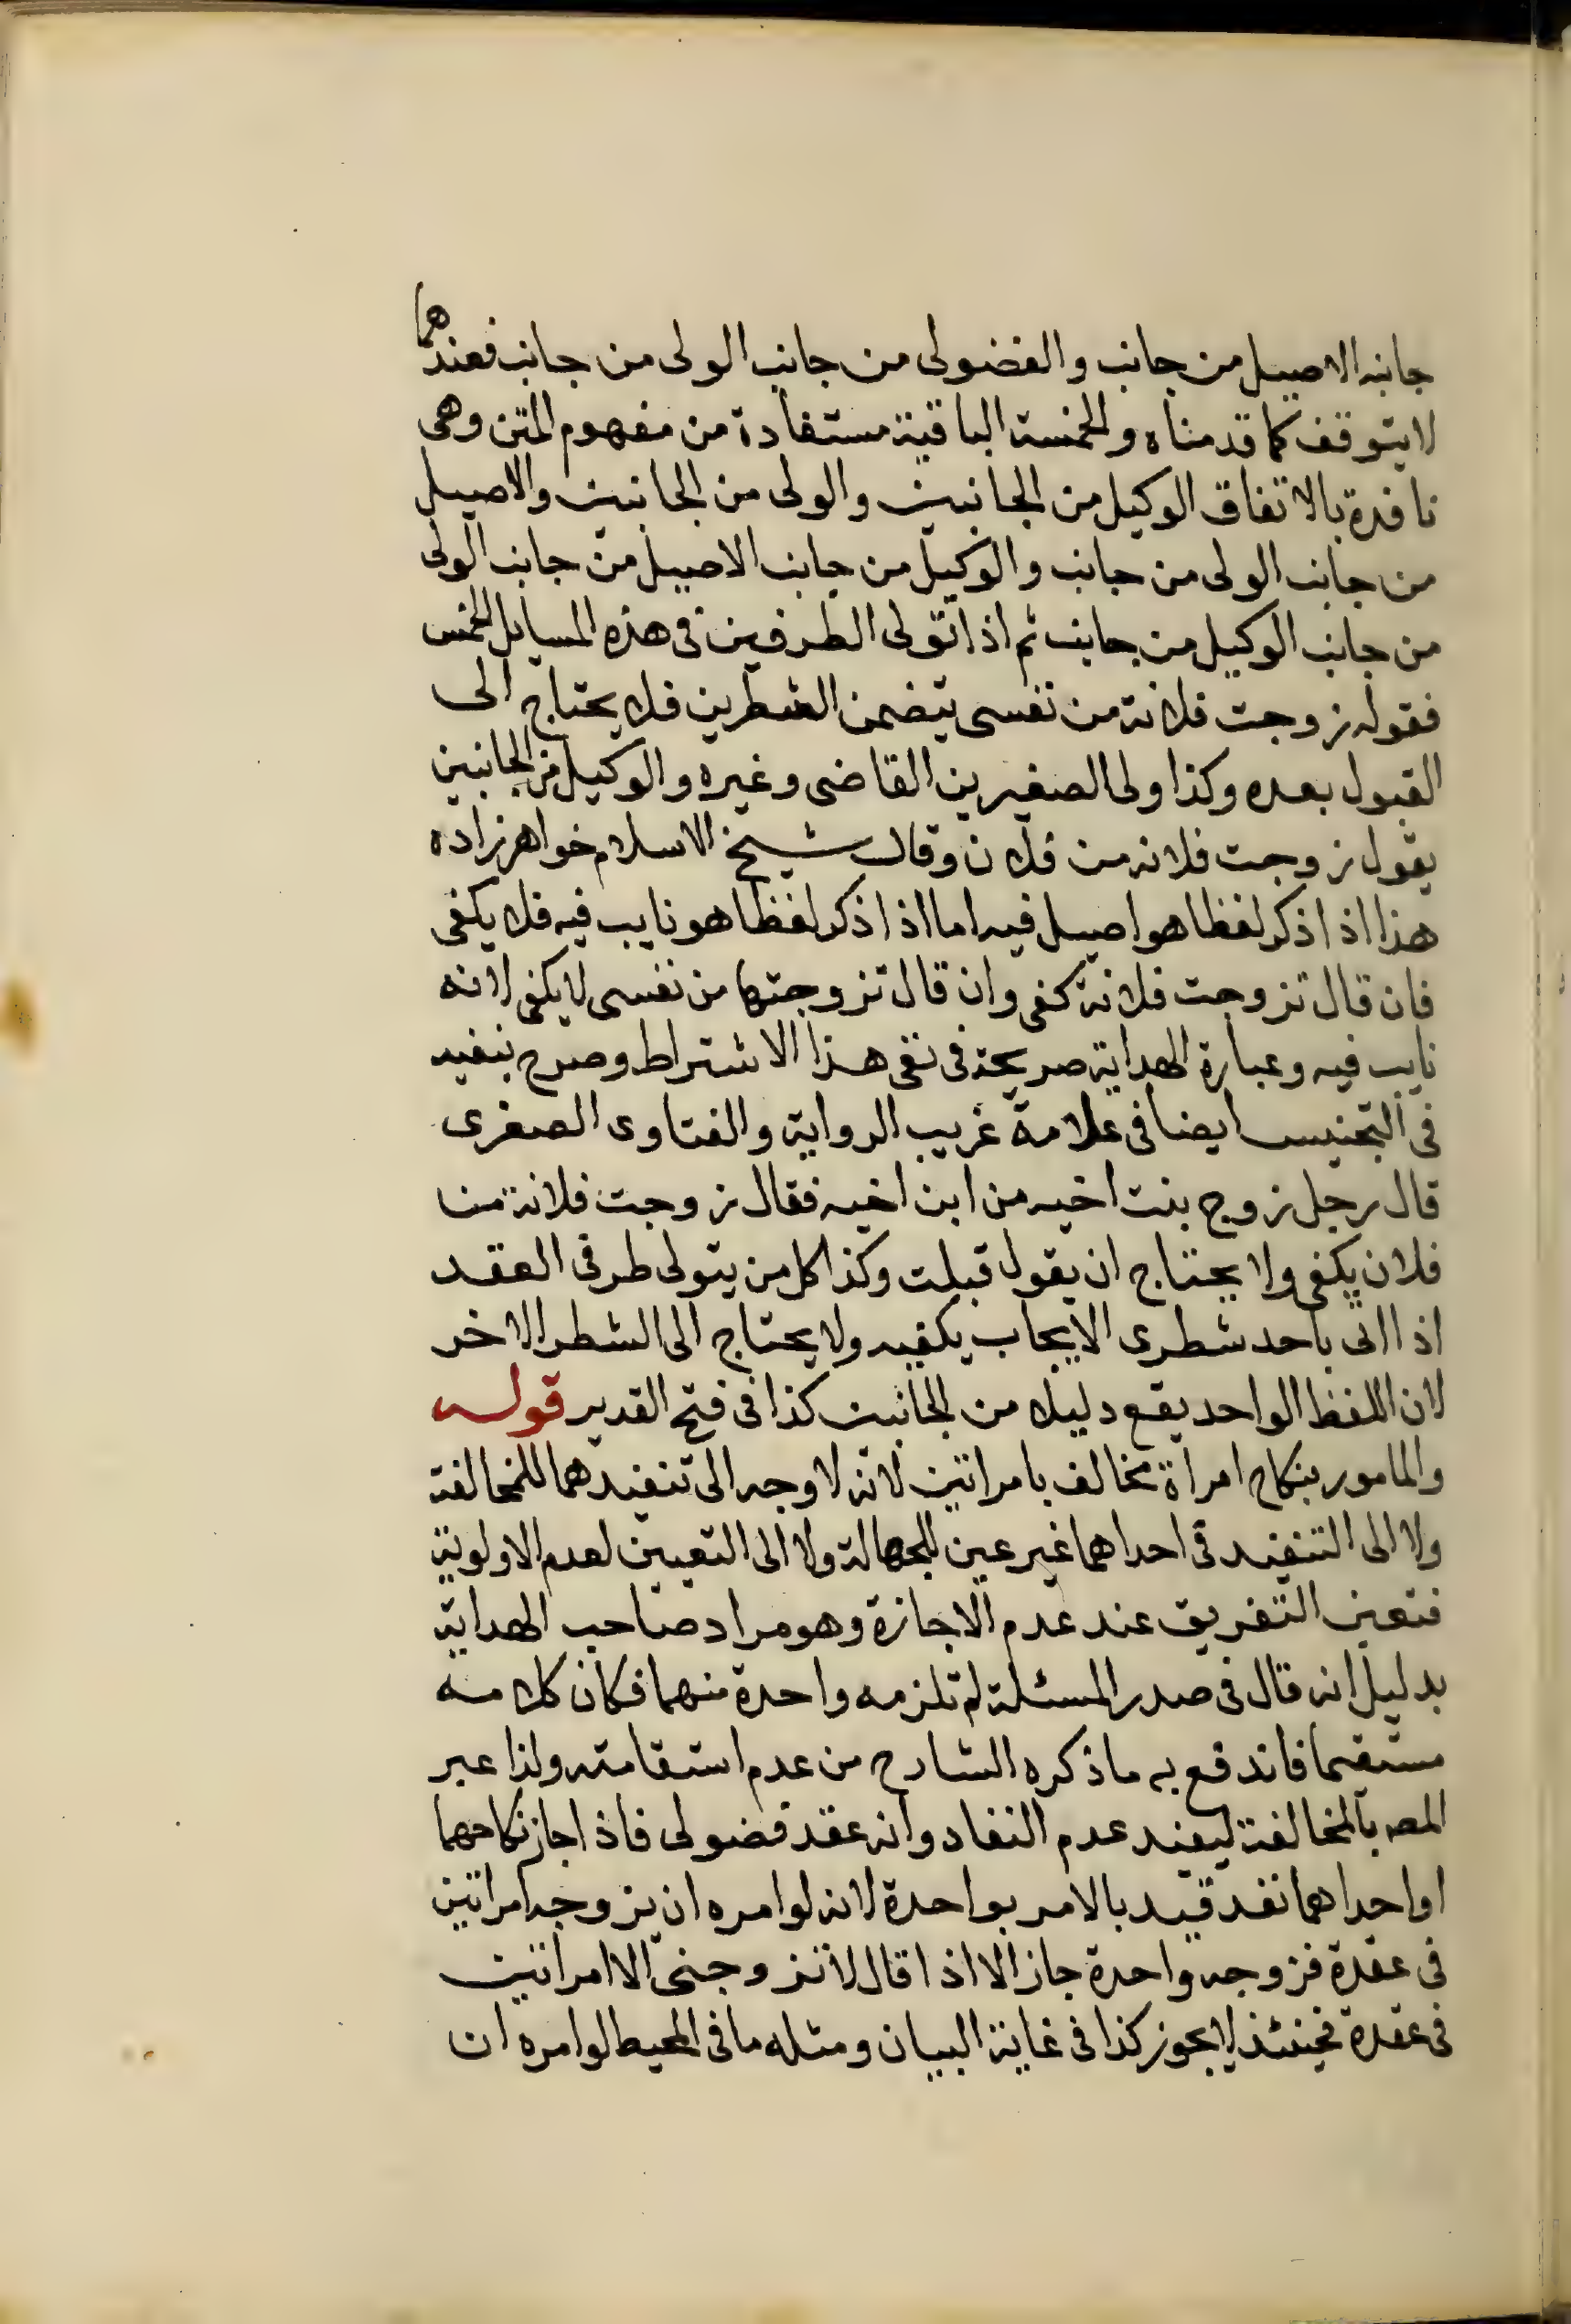 جانبه الاصيل من جانب والفضولى من جانب الولى من جانب فعندهما
لا يتوقف كما قدمناه والخمسة الباقية مستفادة من مفهوم المتن وهى
نافذة بالاتفاق الوكيل من الجانبين والولى من الجانبين والاصيل
من جانب الولى من جانب والوكيل من جانب الاصيل من جانب الولى
من جانب الوكيل من جانب ثم اذا تولى الطرفين فى هذه المسايل الخمس
فقوله زوجت فلانة من نفسى يتضمن الشطرين فلا يحتاج الى
القبول بعده وكذا ولى الصغيرين القاضى وغيره والوكيل من الجانبين
يقول زوجت فلانه من فلان وقال شيخ الاسلام خواهر زاده
هذا اذا ذكر لفظا هو اصيل فيه اما اذا ذكر لفظا هو نايب فيه فلا يكفى
فان قال تزوجت فلانة كفى وان قال تزوجتها من نفسى لا يكفى لانه
نايب فيه وعبارة الهداية صريحة فى نفى هذا الاشتراط وصرح بنفيه
فى التجنيس ايضا فى علامة غريب الرواية والفتاوى الصغرى
قال رجل زوج بنت اخيه من ابن اخيه فقال زوجت فلانة منا
فلان يكفى ولا يحتاج ان يقول قبلت وكذا كل من يتولى طرفى العقد
اذا اتى باحد شطرى الايجاب يكفيه ولا يحتاج الى الشطر الاخر
لان اللفظ الواحد يقع دليلا من الجانبين كذا فى فتح القدير قوله
والمامور بنكاح امراة مخالف بامراتين لانه لا وجه الى تنفيذهما للمخالفة
ولا الى التنفيذ فى احداهما غير عين للجهالة ولا الى التعيين لعدم الاولوية
فتعين التفريق عند عدم الاجازة وهو مراد صاحب الهداية
بدليل انه قال فى صدر المسئلة لم تلزمه واحدة منهما فكان كلامه
مستقيما فاندفع به ما ذكره الشارح من عدم استقامته ولذا عبر
المصه بالمخالفة ليفيد عدم النفاد وانه عقد فضولى فاذ اجاز نكاحهما
او احداهما نفد قيد بالامر بواحدة لانه لو امره ان يزوجه امراتين
فى عقدة فزوجه واحدة جاز الا اذا قال لا تزوجنى الا امراتين
فى عقدة فحينئذ لا يجوز كذا فى غاية البيان ومثله ما فى المحيط لو امره ان